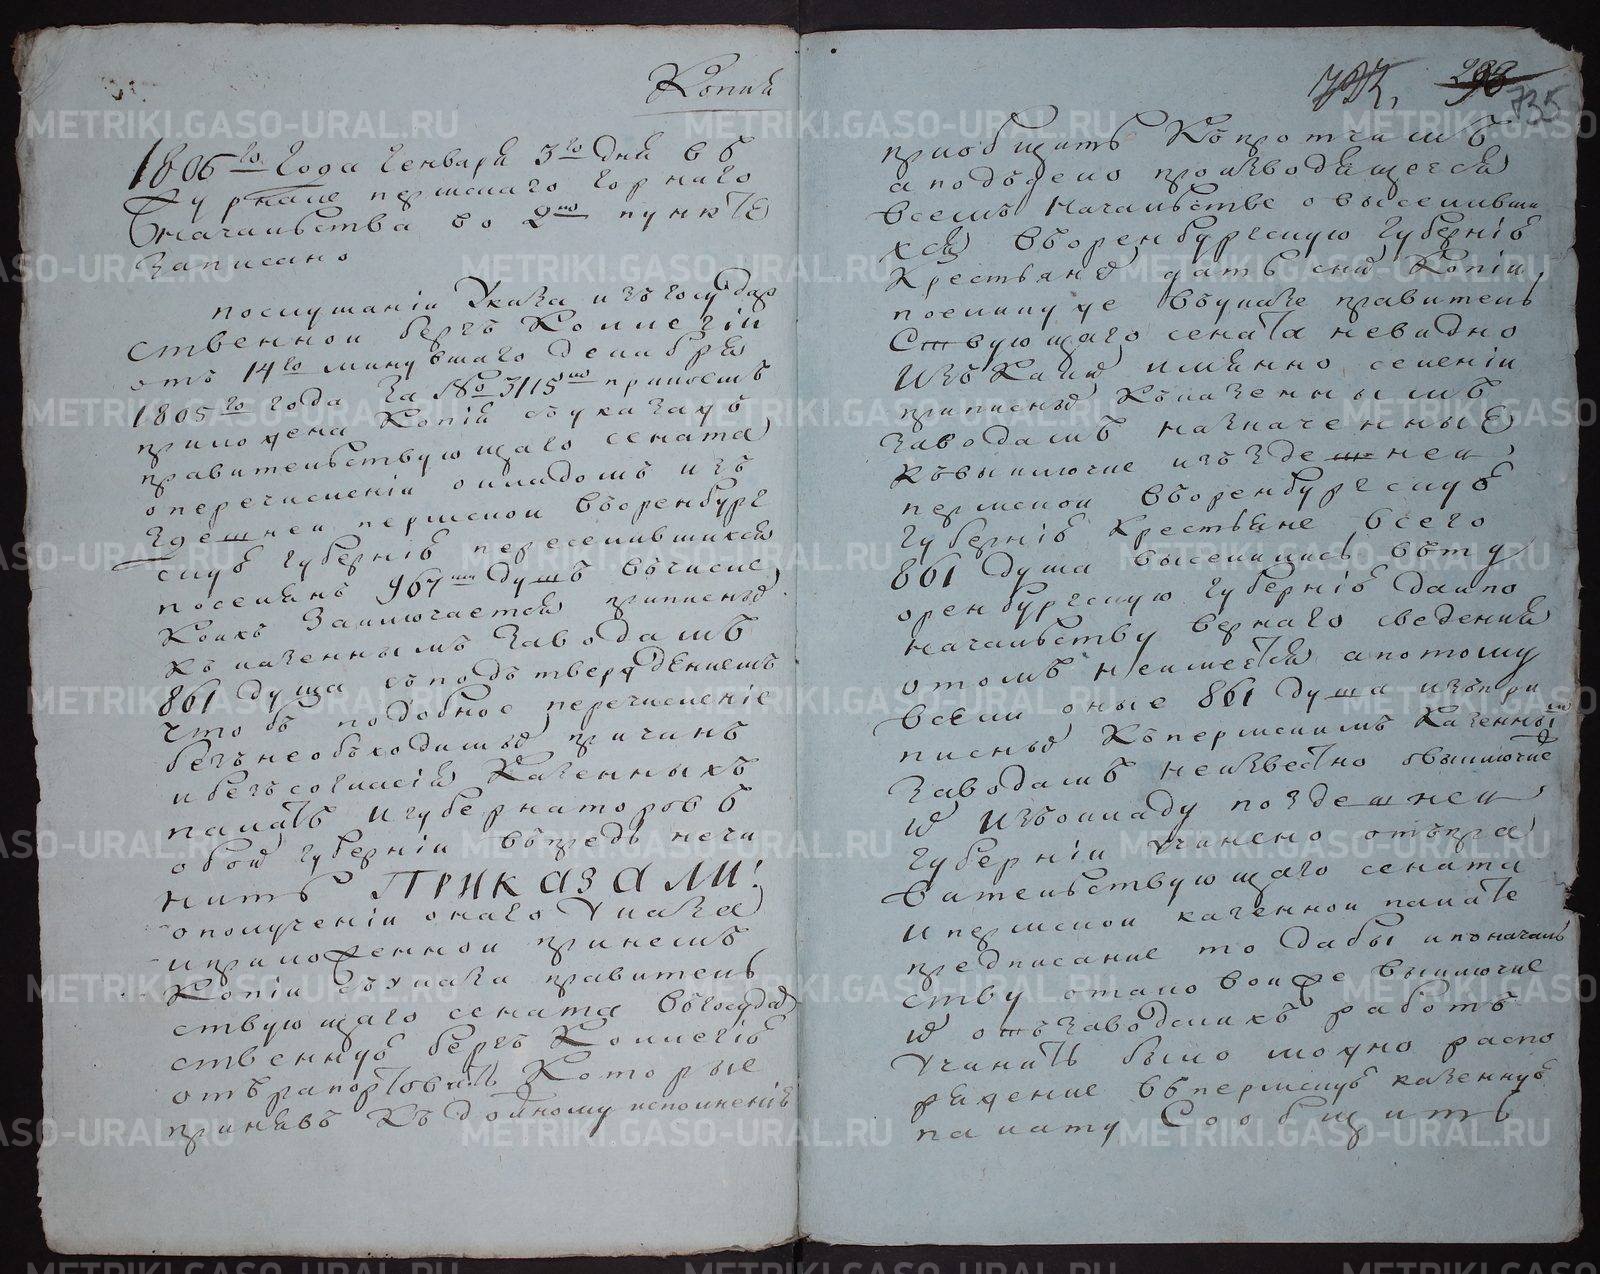 Копия
1806го года Генваря 3го дня въ
Журнале пермскаго горнаго
Началства во 2мъ пункте
Записано
послушании Указа изъ государ
ственной бергъ Коллегіи
отъ 14го минувшаго декабря
1805го года За №о 3115мъ при коемъ
приложена Копія съ указахъ
правительствующаго сената
о перечисленіи окладомъ изъ
здешней пермской въоренбург
скую губернію переселившихся
поселянъ 967ми душъ въчисле
Коихъ Заключается приписныхъ
Къ казеннымъ Заводамъ
861 душа съ подътверждениемъ
чтобъ подобное перечисленіе
безъ необъходимыхъ причинъ
и безъ согласія Казенныхъ
палатъ и губернаторовъ
обоихъ губерніи въпредь нечи
нить ПРИКАЗАЛИ:
о получении онаго Указа
и приложенной принемъ
Копіи съ указа правитель
ствующаго сената въгосудар
ственную бергъ Коллегію
отърапортовать Которые
принявъ Къ должному исполнению
797. 298
735
приобщить Къпротчимъ
а подъ дело производящееся
всемъ Началстве о выселивши
хся въоренбургскую губернію
Крестьянехъ дать сия Копіи,
поелику же въуказе правитель
Ствующаго сената невидно
Изъ Какихъ имянно селеніи
приписныхъ Къказеннымъ
Заводамъ назначенные
Къвыключке изъ Здешней
пермской въоренбургскую
Губернію Крестьяне всего
861 душа выселились въту
оренбургскую губернію да и по
Началству верного сведения
о томъ неимеется а потому
всели оные 861 душа изъпри
писныхъ Къпермскимъ Казеннымъ
Заводамъ неизвестно овыключке
ихъ Изъокладу поздешней
губерніи учинено отъпра
вительствующаго сената
и пермской казенной палате
предписание то дабы и поначаль
ству оталовои же выключке
ихъ отъзаводскихъ работъ
Учинить было можно распо
ряжение въпермскую казенную
палату Сообщить